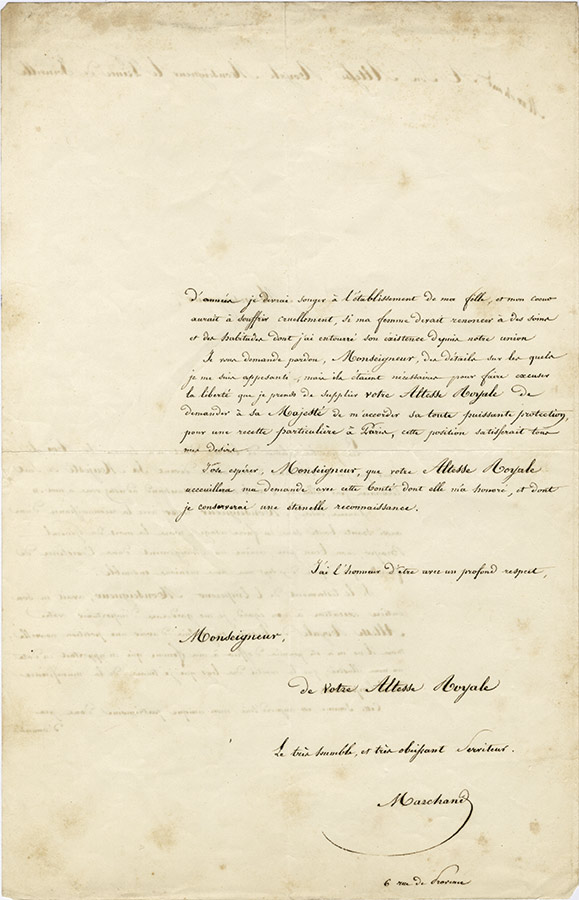 d'années je devrai songer à l'établissement de ma fille, et mon coeur
aurait à souffrir cruellement, si ma femme devait renoncer à des soins
et des habitudes dont j'ai entouré son existence depuis notre union
Je vous demande pardon, Monseigneur, des détails sur les quels
je me suis appesanti, mais ils étaient nécessaires pour faire excuser
la liberté que je prends de supplier votre Altesse Royale de
demander à sa Majesté de m'accorder sa toute puissante protection,
pour une recette particulière à Paris, cette position satisferait tous
mes desirs.
J'ose espérer, Monseigneur, que votre Altesse Royale
accueillera ma demande avec cette bonté dont elle m'a honoré, et dont
je conserverai une éternelle reconnaissance.
J'ai l'honneur d'être avec un profond respect,
Monseigneur,
de Votre Altesse Royale
Le très humble, et très obéissant Serviteur.
Marchand
6 rue de